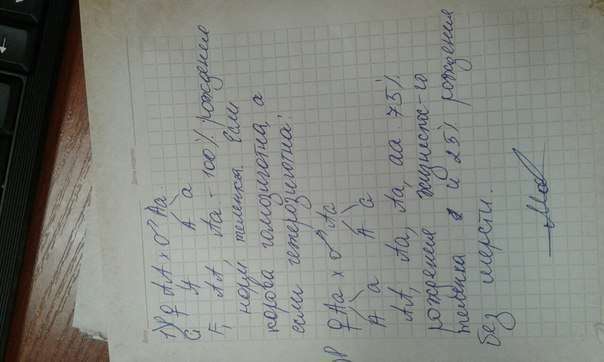 1) P ♀ AA x ♂ Aa
G A A a
F₁ AA Aa - 100% рождения
норм телёнка. Если
корова гомозиготна, а
если гетерозиготна:
P ♀ Aa x ♂ Aa
A a A a
AA, Aa, Aa, aa 75%
рождения жизнеспос-го
телёнка и 25% рождения
без шерсти.